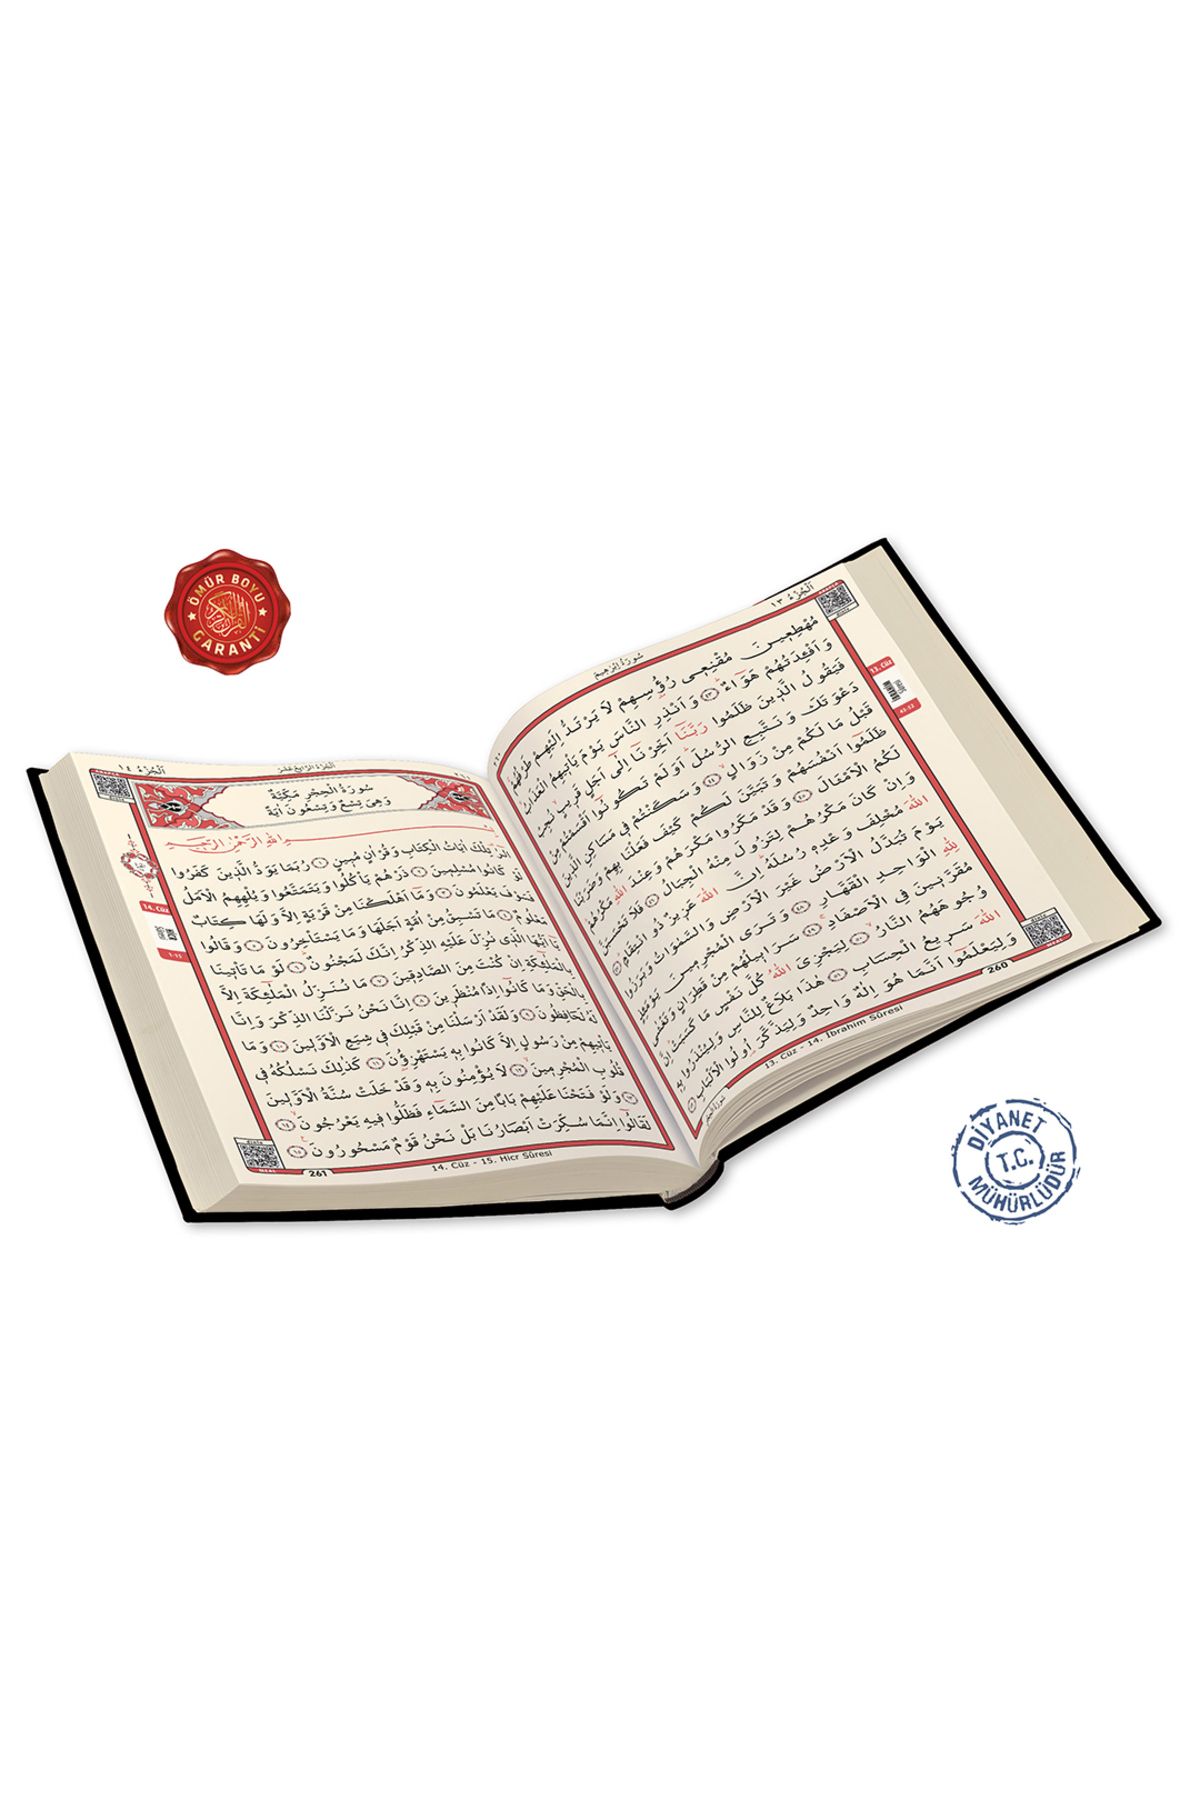 ÖMÜR BOYU
GARANTİ
اَلْجُزْءُ ١٣
سُورَةُ اِبْرٰهِيمَ
مُهْطِعِينَ مُقْنِعِي رُؤُسِهِمْ لَا يَرْتَدُّ اِلَيْهِمْ طَرْفُهُمْ
وَاَفْـِٔدَتُهُمْ هَوَٓاءٌ ﴿٤٣﴾ وَاَنْذِرِ النَّاسَ يَوْمَ يَأْتِيهِمُ الْعَذَابُ
فَيَقُولُ الَّذِينَ ظَلَمُوا رَبَّنَٓا اَخِّرْنَٓا اِلٰٓى اَجَلٍ قَرِيبٍۙ نُجِبْ
دَعْوَتَكَ وَنَتَّبِعِ الرُّسُلَۜ اَوَلَمْ تَكُونُٓوا اَقْسَمْتُمْ مِنْ
قَبْلُ مَا لَكُمْ مِنْ زَوَالٍۙ ﴿٤٤﴾ وَسَكَنْتُمْ فِي مَسَاكِنِ الَّذِينَ
ظَلَمُٓوا اَنْفُسَهُمْ وَتَبَيَّنَ لَكُمْ كَيْفَ فَعَلْنَا بِهِمْ وَضَرَبْنَا
لَكُمُ الْاَمْثَالَ ﴿٤٥﴾ وَقَدْ مَكَرُوا مَكْرَهُمْ وَعِنْدَ اللّٰهِ مَكْرُهُمْ
وَاِنْ كَانَ مَكْرُهُمْ لِتَزُولَ مِنْهُ الْجِبَالُ ﴿٤٦﴾ فَلَا تَحْسَبَنَّ
اللّٰهَ مُخْلِفَ وَعْدِهِ رُسُلَهُۜ اِنَّ اللّٰهَ عَزِيزٌ ذُو انْتِقَامٍ ﴿٤٧﴾
يَوْمَ تُبَدَّلُ الْاَرْضُ غَيْرَ الْاَرْضِ وَالسَّمٰوَاتُ وَبَرَزُوا
لِلّٰهِ الْوَاحِدِ الْقَهَّارِ ﴿٤٨﴾ وَتَرَى الْمُجْرِمِينَ يَوْمَئِذٍ
مُقَرَّنِينَ فِي الْاَصْفَادِۚ ﴿٤٩﴾ سَرَابِيلُهُمْ مِنْ قَطِرَانٍ وَتَغْشٰى
وُجُوهَهُمُ النَّارُۙ ﴿٥٠﴾ لِيَجْزِيَ اللّٰهُ كُلَّ نَفْسٍ مَا كَسَبَتْۜ اِنَّ
اللّٰهَ سَرِيعُ الْحِسَابِ ﴿٥١﴾ هٰذَا بَلَاغٌ لِلنَّاسِ وَلِيُنْذَرُوا بِهِ
وَلِيَعْلَمُٓوا اَنَّمَا هُوَ اِلٰهٌ وَاحِدٌ وَلِيَذَّكَّرَ اُولُوا الْاَلْبَابِ ﴿٥٢﴾
13. Cüz
İBRAHİM
Sûresi
43-52
MEAL
260
13. Cüz - 14. İbrahim Sûresi
اَلْجُزْءُ الرَّابِعُ عَشَرَ
اَلْجُزْءُ ١٤
سُورَةُ الْحِجْرِ مَكِّيَّةٌ
وَهِيَ تِسْعٌ وَتِسْعُونَ اٰيَةً
بِسْمِ اللّٰهِ الرَّحْمٰنِ الرَّحِيمِ
الٓرٰ تِلْكَ اٰيَاتُ الْكِتَابِ وَقُرْاٰنٍ مُبِينٍ ﴿١﴾ رُبَمَا يَوَدُّ الَّذِينَ كَفَرُوا
لَوْ كَانُوا مُسْلِمِينَ ﴿٢﴾ ذَرْهُمْ يَأْكُلُوا وَيَتَمَتَّعُوا وَيُلْهِهِمُ الْاَمَلُ
فَسَوْفَ يَعْلَمُونَ ﴿٣﴾ وَمَٓا اَهْلَكْنَا مِنْ قَرْيَةٍ اِلَّا وَلَهَا كِتَابٌ
مَعْلُومٌ ﴿٤﴾ مَا تَسْبِقُ مِنْ اُمَّةٍ اَجَلَهَا وَمَا يَسْتَأْخِرُونَ ﴿٥﴾ وَقَالُوا
يَٓا اَيُّهَا الَّذِي نُزِّلَ عَلَيْهِ الذِّكْرُ اِنَّكَ لَمَجْنُونٌۜ ﴿٦﴾ لَوْ مَا تَأْتِينَا
بِالْمَلٰٓئِكَةِ اِنْ كُنْتَ مِنَ الصَّادِقِينَ ﴿٧﴾ مَا نُنَزِّلُ الْمَلٰٓئِكَةَ اِلَّا
بِالْحَقِّ وَمَا كَانُٓوا اِذًا مُنْظَرِينَ ﴿٨﴾ اِنَّا نَحْنُ نَزَّلْنَا الذِّكْرَ وَاِنَّا
لَهُ لَحَافِظُونَ ﴿٩﴾ وَلَقَدْ اَرْسَلْنَا مِنْ قَبْلِكَ فِي شِيَعِ الْاَوَّلِينَ ﴿١٠﴾ وَمَا
يَأْتِيهِمْ مِنْ رَسُولٍ اِلَّا كَانُوا بِهِ يَسْتَهْزِؤُنَ ﴿١١﴾ كَذٰلِكَ نَسْلُكُهُ فِي
قُلُوبِ الْمُجْرِمِينَۙ ﴿١٢﴾ لَا يُؤْمِنُونَ بِهِ وَقَدْ خَلَتْ سُنَّةُ الْاَوَّلِينَ
﴿١٣﴾ وَلَوْ فَتَحْنَا عَلَيْهِمْ بَابًا مِنَ السَّمَٓاءِ فَظَلُّوا فِيهِ يَعْرُجُونَۙ ﴿١٤﴾
لَقَالُٓوا اِنَّمَا سُكِّرَتْ اَبْصَارُنَا بَلْ نَحْنُ قَوْمٌ مَسْحُورُونَ ﴿١٥﴾
14. Cüz
HİCR
Sûresi
1-15
MEAL
261
14. Cüz - 15. Hicr Sûresi
DİYANET
T.C.
MÜHÜRLÜDÜR